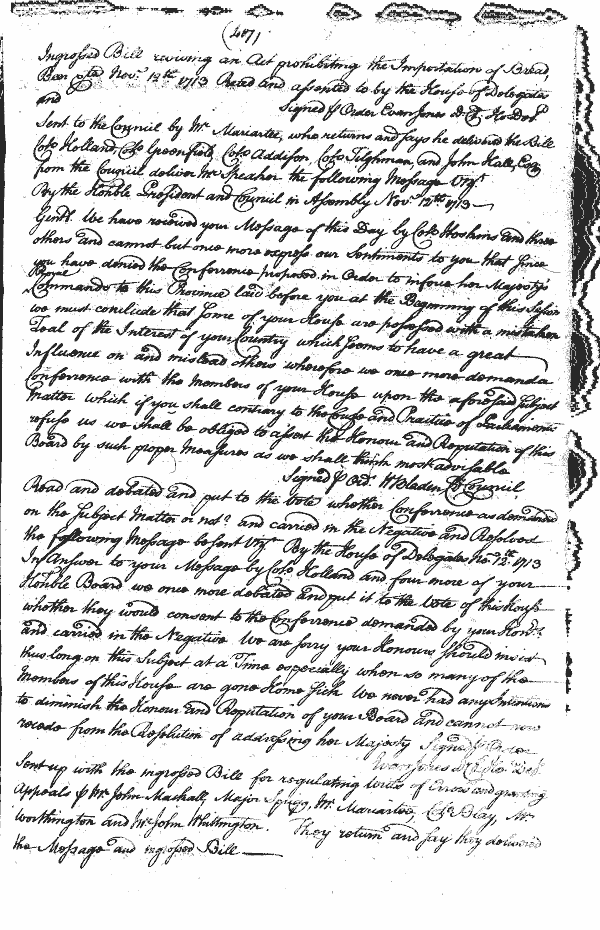 (487)
Ingrossed Bill reviving an Act prohibiting the Importation of Bread,
Beer &ca Novr. 12th 1713 Read and assented to by the House of Delegates
and Signed p Order Evan Jones Cl. Ho. Del
Sent to the Council by Mr Mariartee, who returns and says he delivered the Bill
Colo Holland, Colo Greenfield, Colo Addison, Colo Tilghman, and John Hall, Esqr
from the Council deliver Mr Speaker the following Message Vizt.
By the Honble President and Council in Assembly Novr. 12th 1713
Gentl. We have received your Message of this Day by Colo Hoskins and three
others and cannot but once more express our Sentiments to you that since
you have denied the Conferrence proposed in Order to inforce her Majestys
Royal
Commands to this Province laid before you at the Beginning of this Session
we must conclude that some of your House are possessed with a mistaken
Zeal of the Interest of your Country which seems to have a great
Influence on and mislead others wherefore we once more demand a
Conferrence with the Members of your House upon the aforesaid Subject
Matter which if you shall contrary to the Use and Practice of Parliaments
refuse us we shall be obliged to assert the Honour and Reputation of this
Board by such proper Measures as we shall think most advisable
Signed p Ord. W Bladen Cl Council
Read and debated and put to the Vote whether Conferrence as demanded
on the Subject Matter or not? and carried in the Negative and Resolved
the following Message be sent Vizt. By the House of Delegates No. 12th 1713
In Answer to your Message by Colo Holland and four more of your
Honble Board we once more debated and put it to the Vote of this House
whether they would consent to the Conferrence demanded by your Honrs.
and carried in the Negative We are sorry your Honours should insist
thus long on this Subject at a Time especially when so many of the
Members of this House are gone Home sick We never had any Intentions
to diminish the Honour and Reputation of your Board and cannot now
recede from the Resolution of addressing her Majesty Signed p Order
Evan Jones Cl. Ho. Del.
Sent up with the ingrossed Bill for regulating Writs of Error and granting
Appeals p Mr John Mashall, Major Sprigg, Mr. Mariartee, Mr
Worthington and Mr John Whittington. They return and say they delivered
the Message and ingrossed Bill